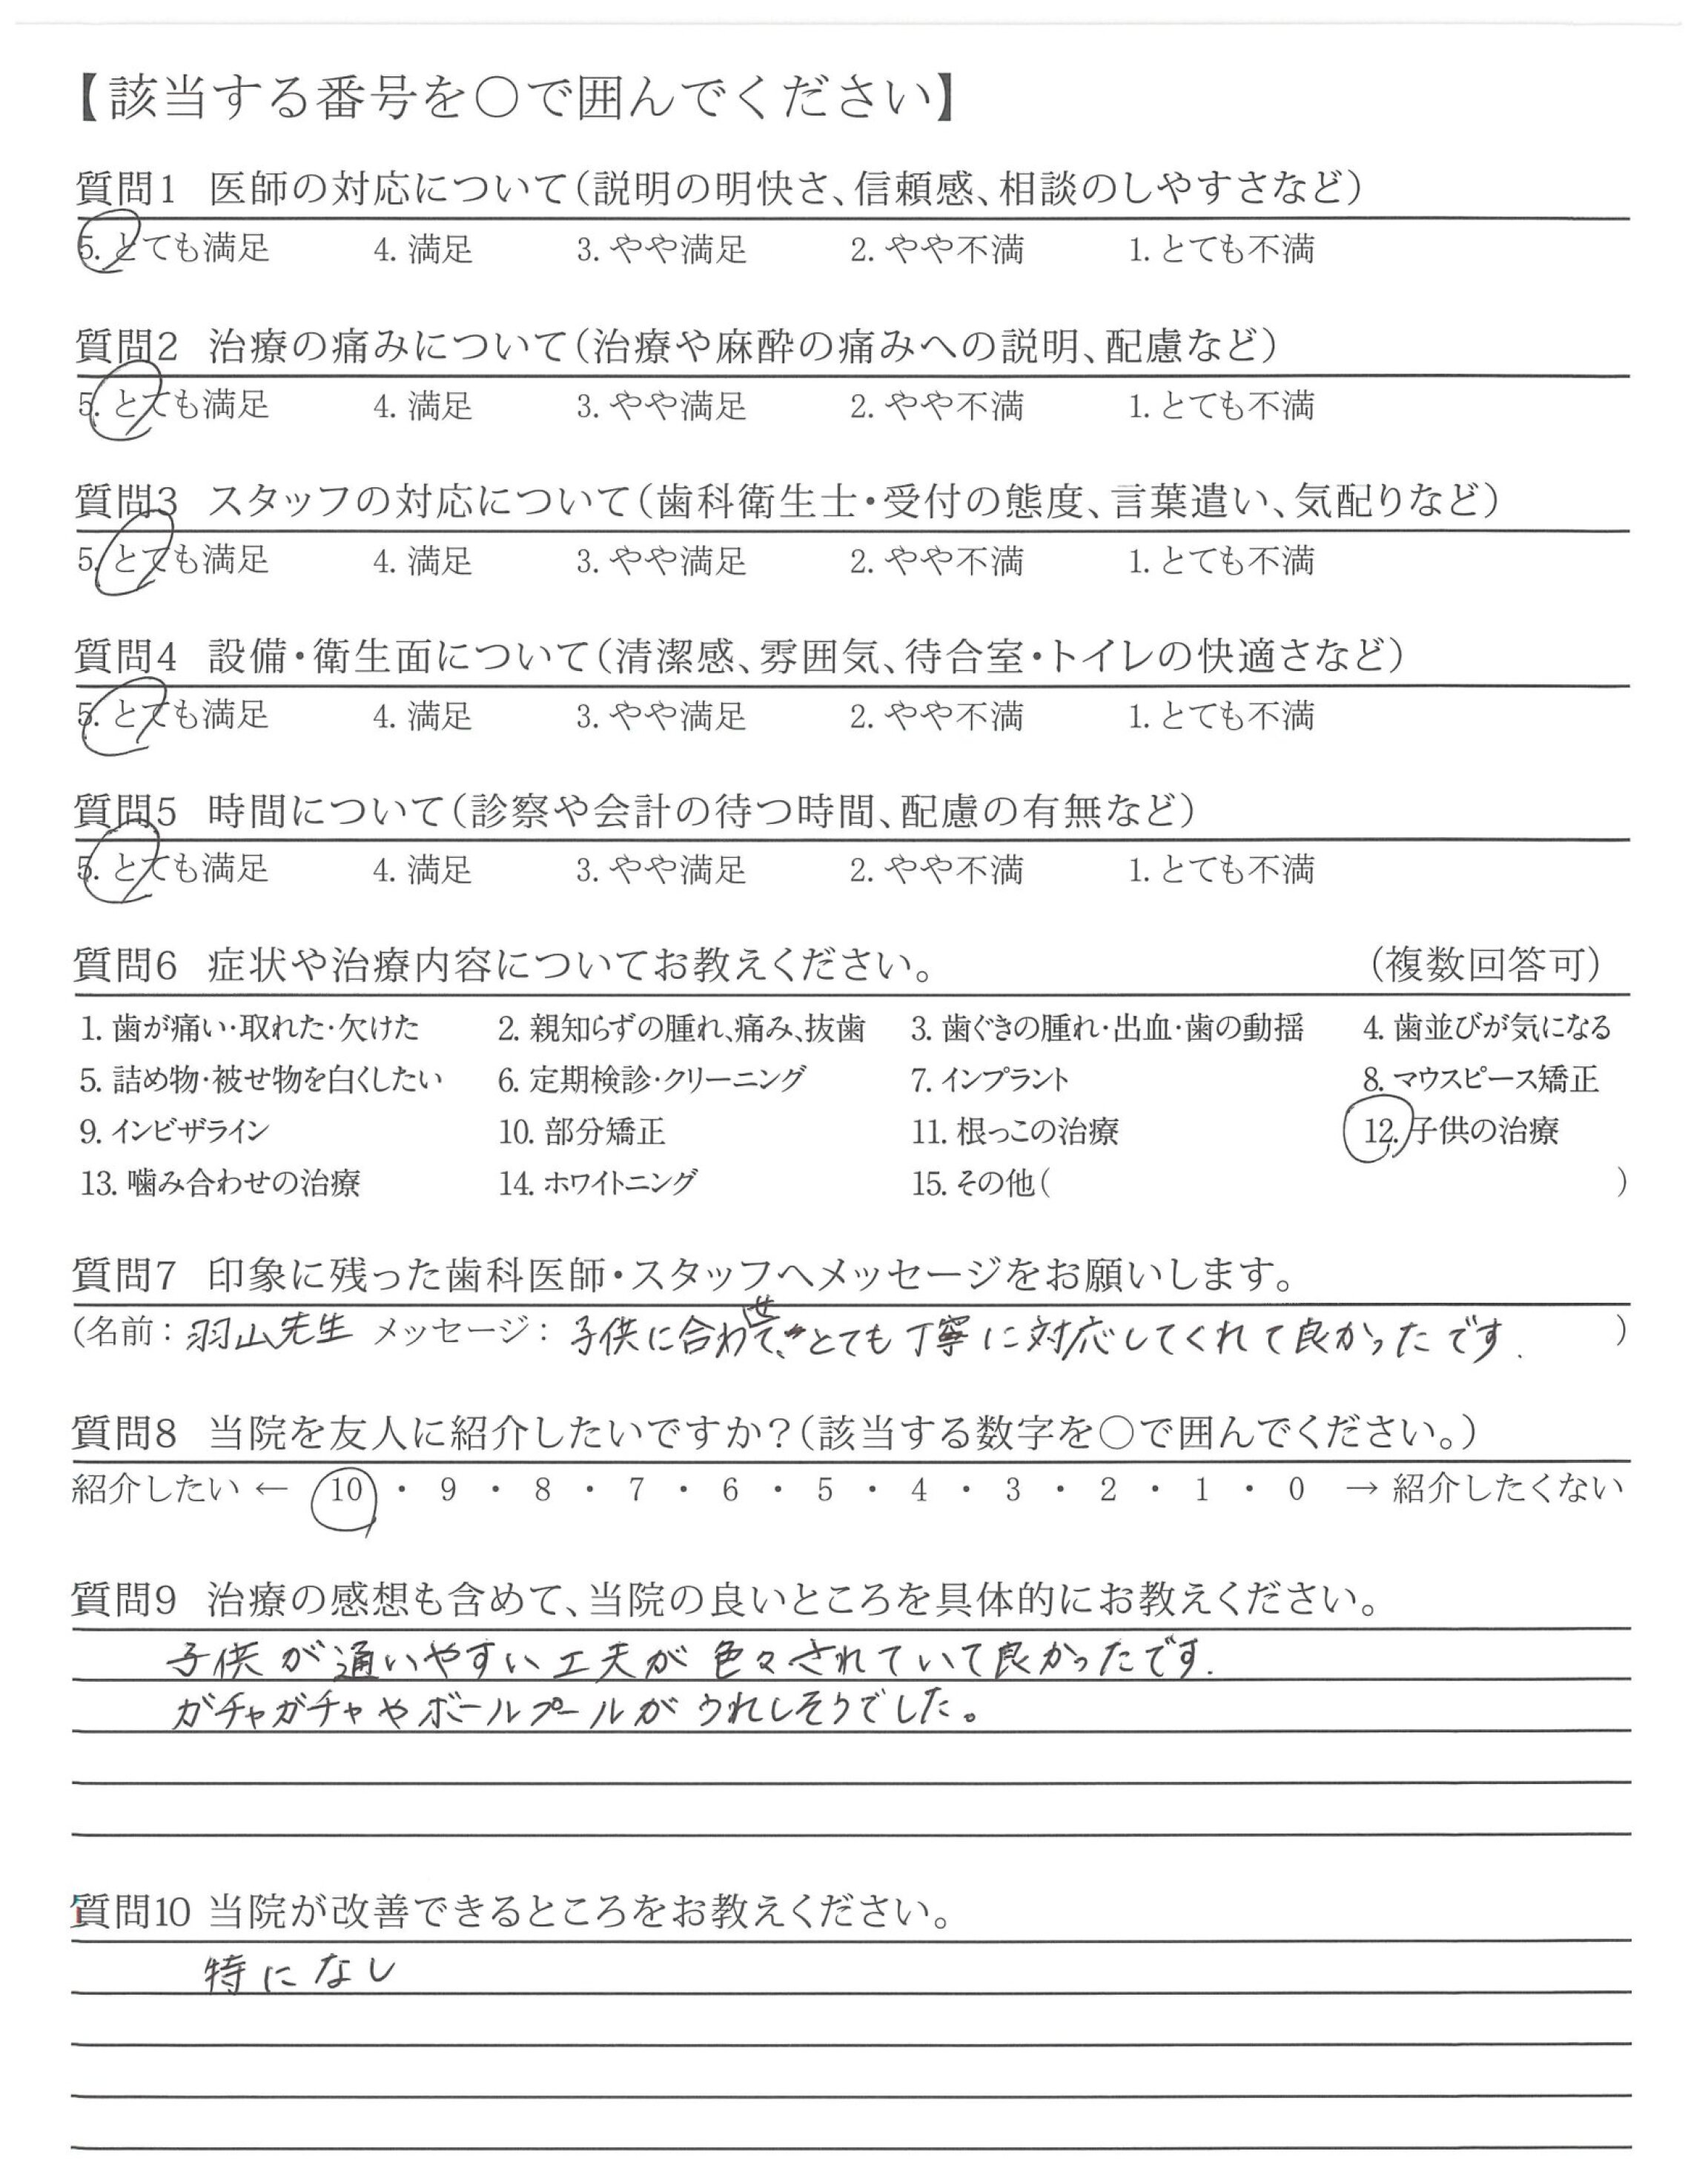 【該当する番号を○で囲んでください】
質問1 医師の対応について(説明の明快さ、信頼感、相談のしやすさなど)
5. とても満足 4. 満足 3. やや満足 2. やや不満 1. とても不満
質問2 治療の痛みについて(治療や麻酔の痛みへの説明、配慮など)
5. とても満足 4. 満足 3. やや満足 2. やや不満 1. とても不満
質問3 スタッフの対応について(歯科衛生士・受付の態度、言葉遣い、気配りなど)
5. とても満足 4. 満足 3. やや満足 2. やや不満 1. とても不満
質問4 設備・衛生面について(清潔感、雰囲気、待合室・トイレの快適さなど)
5. とても満足 4. 満足 3. やや満足 2. やや不満 1. とても不満
質問5 時間について(診察や会計の待つ時間、配慮の有無など)
5. とても満足 4. 満足 3. やや満足 2. やや不満 1. とても不満
質問6 症状や治療内容についてお教えください。 (複数回答可)
1. 歯が痛い・取れた・欠けた 2. 親知らずの腫れ、痛み、抜歯 3. 歯ぐきの腫れ・出血・歯の動揺 4. 歯並びが気になる
5. 詰め物・被せ物を白くしたい 6. 定期検診・クリーニング 7. インプラント 8. マウスピース矯正
9. インビザライン 10. 部分矯正 11. 根っこの治療 12. 子供の治療
13. 噛み合わせの治療 14. ホワイトニング 15. その他( )
質問7 印象に残った歯科医師・スタッフへメッセージをお願いします。
(名前：羽山先生 メッセージ：子供に合わせて、とても丁寧に対応してくれて良かったです. )
質問8 当院を友人に紹介したいですか？(該当する数字を○で囲んでください。)
紹介したい ← 10 ・ 9 ・ 8 ・ 7 ・ 6 ・ 5 ・ 4 ・ 3 ・ 2 ・ 1 ・ 0 → 紹介したくない
質問9 治療の感想も含めて、当院の良いところを具体的にお教えください。
子供が通いやすい工夫が色々されていて良かったです.
ガチャガチャやボールプールがうれしそうでした。
質問10 当院が改善できるところをお教えください。
特になし